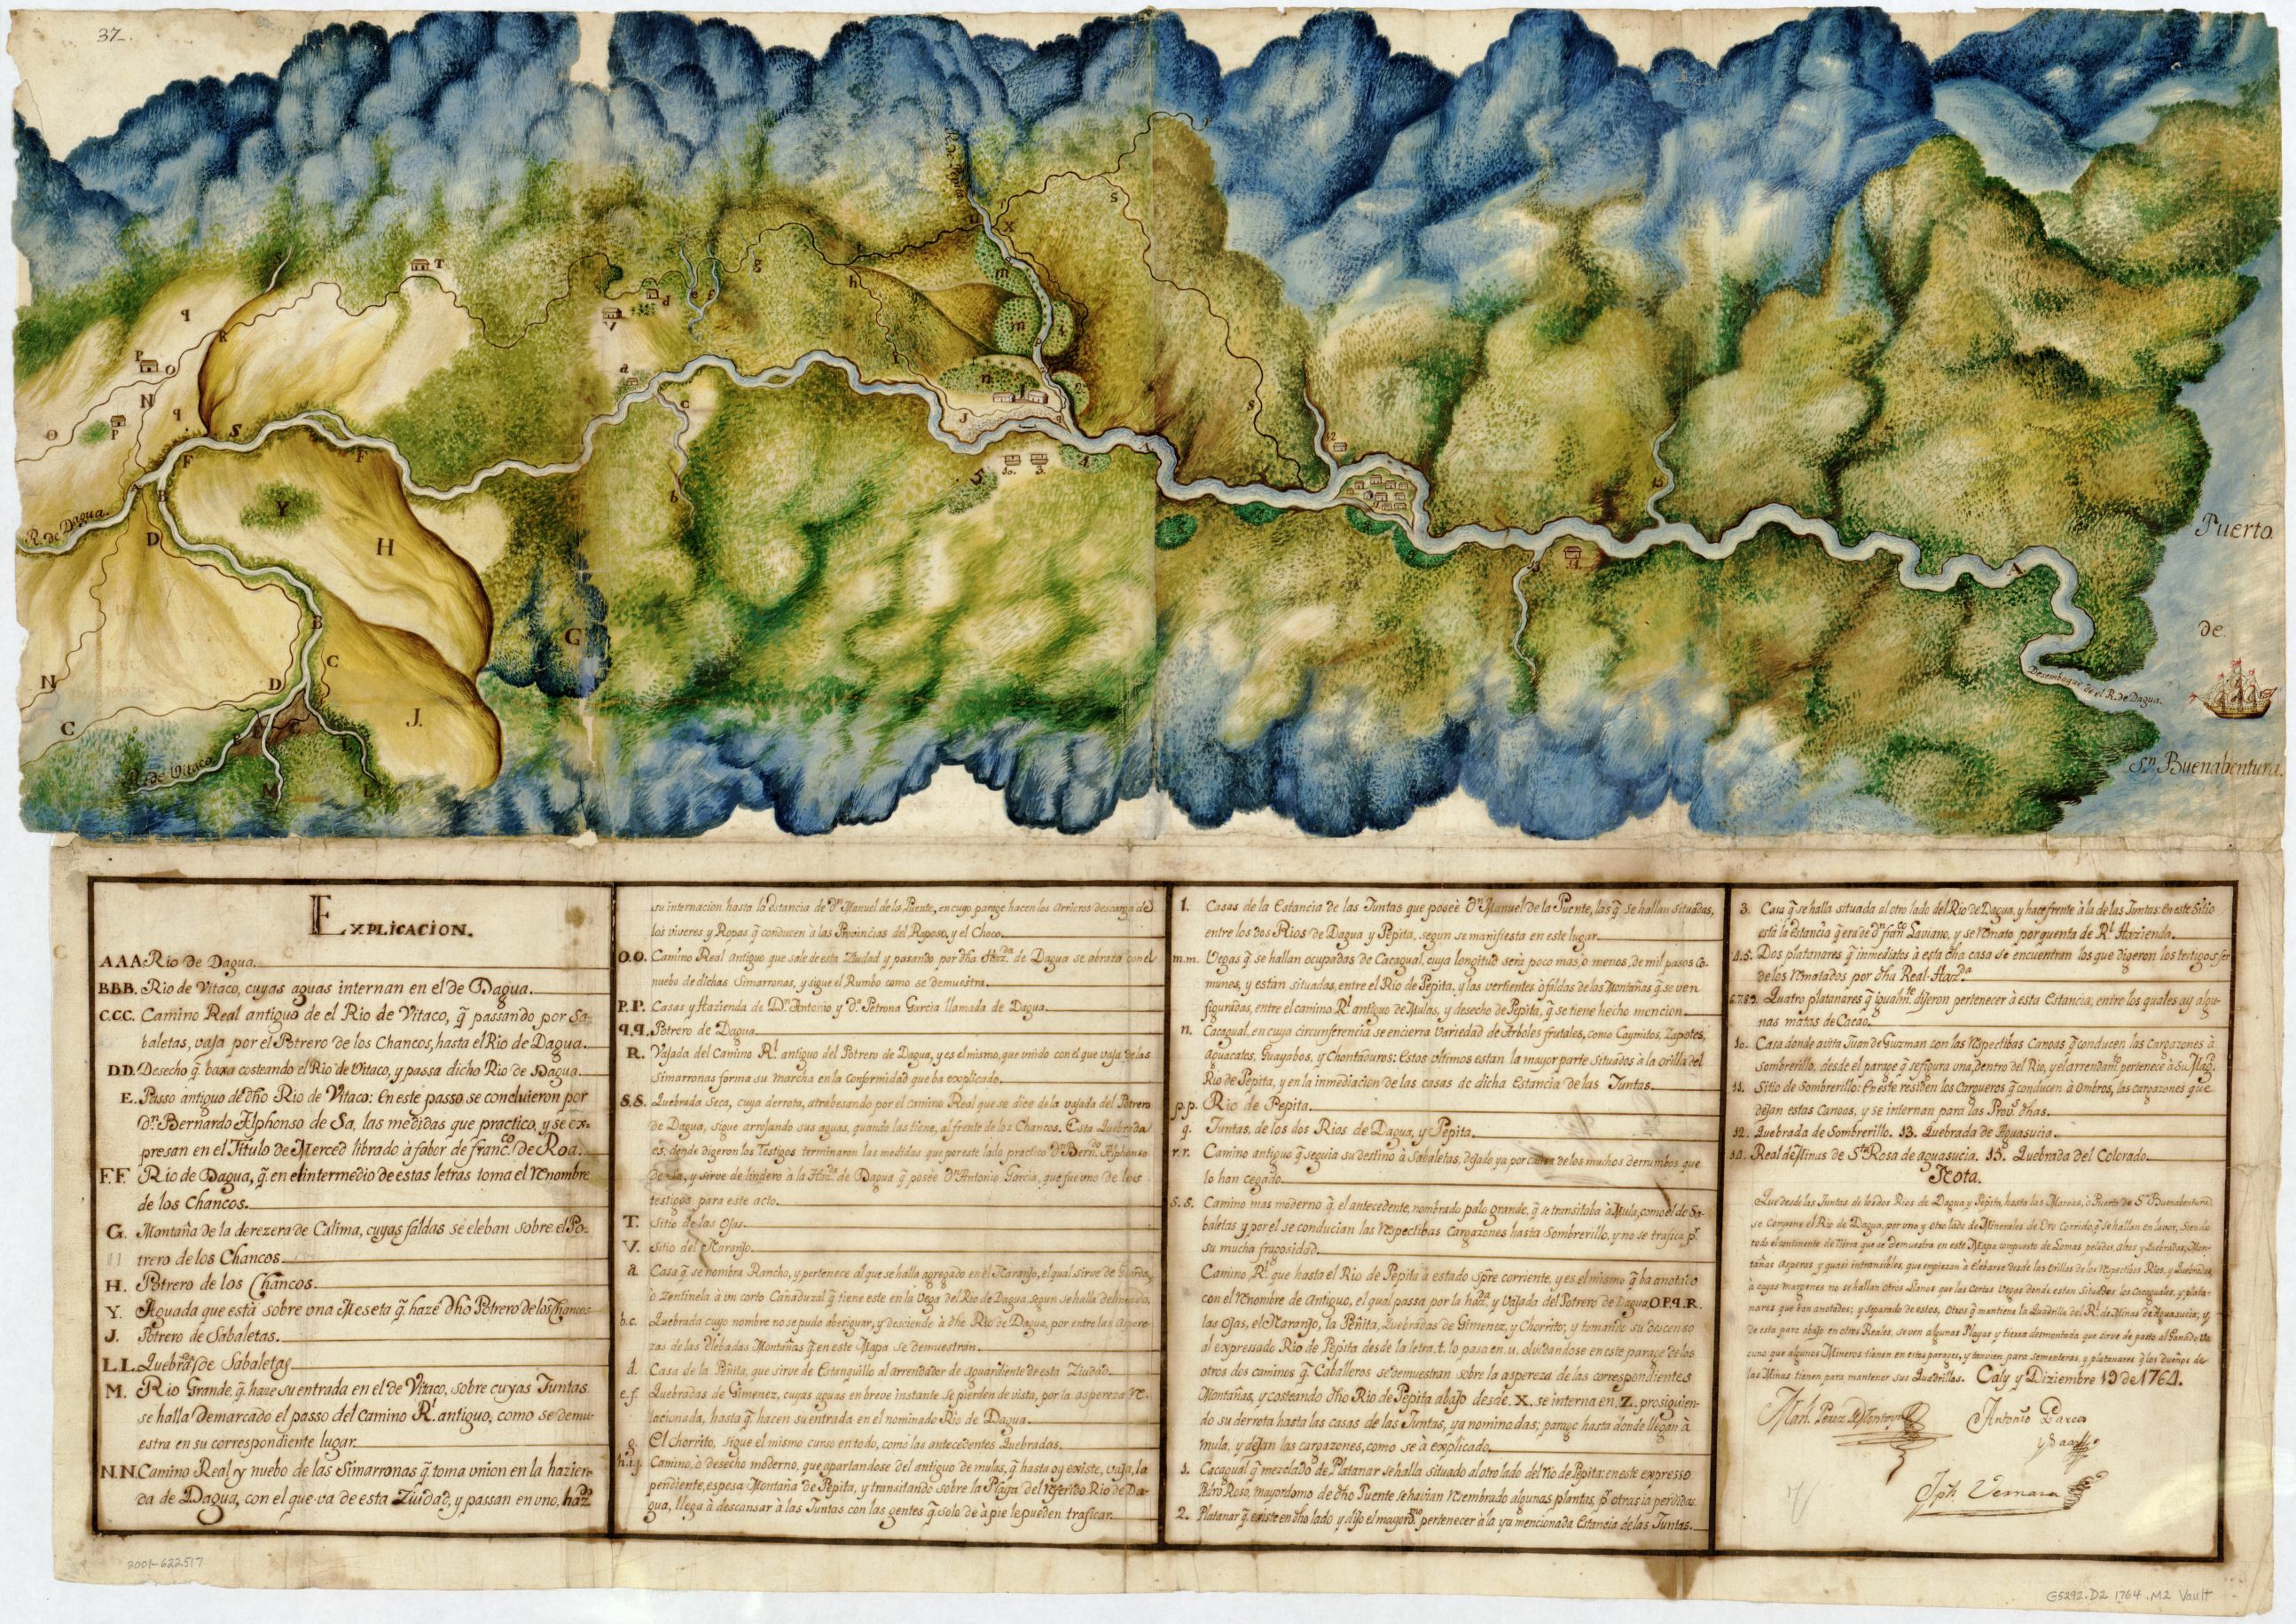 37_.
R. de Pepita
R. de Dagua.
R. de Vitaco
Puerto
de
Sn. Buenabentura.
Desemboque de el R. de Dagua.
EXPLICACION.
A.A.A. Rio de Dagua.
B.B.B. Rio de Vitaco, cuyas aguas internan en el de Dagua.
C.C.C. Camino Real antiguo de el Rio de Vitaco, q̃ passando por Sa-
baletas, vaja por el Potrero de los Chancos, hasta el Rio de Dagua.
D.D. Desecho q̃ baxa costeando el Rio de Vitaco, y passa dicho Rio de Dagua.
E. Passo antiguo de dho Rio de Vitaco: En este passo se concluieron por
Dn. Bernardo Alphonso de Sa, las medidas que practico, y se ex-
presan en el Titulo de Merced librado à fabor de Franco. de Roa.
F.F. Rio de Dagua, q̃ en el intermedio de estas letras toma el renombre
de los Chancos.
G. Montaña de la derezera de Calima, cuyas faldas se eleban sobre el Po-
trero de los Chancos
H. Potrero de los Chancos.
Y. Aguada que està sobre una Meseta q̃ haze dho Potrero de los Chancos
J. Potrero de Sabaletas.
L.L. Quebradas de Sabaletas
M. Rio Grande, q̃ haze su entrada en el de Vitaco, sobre cuyas Juntas
se halla demarcado el passo del camino Rl. antiguo, como se demu-
estra en su correspondiente lugar.
N.N. Camino Real y nuebo de las Simarronas q̃ toma union en la hazien-
da de Dagua, con el que va de esta Ziudad, y passan en uno, hazda.
su internacion hasta la estancia de Dn. Manuel de la Puente, en cuyo parage hacen los Arrieros descarga de
los viveres y Ropas q̃ conducen à las Provincias del Raposo, y el Choco.
O.O. Camino Real Antiguo que sale de esta Ziudad y pasando por dha Hazda. de Dagua se abraza con el
nuebo de dichas Simarronas, y sigue el Rumbo como se demuestra.
P.P. Casas y Hazienda de Dn. Antonio y Da. Petrona Garcia llamada de Dagua.
q.q. Potrero de Dagua.
R. Vajada del Camino Rl. antiguo del Potrero de Dagua, y es el mismo, que unido con el que vaja de las
Simarronas forma su marcha en la conformidad que ba explicado.
S.S. Quebrada Seca, cuya derrota, atrabesando por el camino Real que se dice de la vajada del Potrero
de Dagua, sigue arrojando sus aguas, quando las tiene, al frente de los Chancos. Esta Quebrada
es, donde digeron los Testigos terminaron las medidas que por este lado practico Dn. Berndo. Alphonso
de Sa, y sirve de lindero à la Hazda. de Dagua q̃ posee Dn. Antonio Garcia, que fue uno de los
testigos para este acto.
T. Sitio de las Ojas.
V. Sitio del Naranjo.
a. Casa q̃ se nombra Rancho, y pertenece al que se halla agregado en el Naranjo, el qual sirve de Guarda,
ò Zentinela à un corto Cañaduzal q̃ tiene este en la Vega del Rio de Dagua, segun se halla delineado.
b.c. Quebrada cuyo nombre no se pudo aberiguar, y desciende à dho Rio de Dagua, por entre las aspere-
zas de las elebadas Montañas q̃ en este Mapa se demuestran.
d. Casa de la Peñita, que sirve de Estanquillo al arrendador de Aguardiente de esta Ziudad.
e.f. Quebradas de Gimenez, cuyas aguas en breve instante se pierden de vista, por la aspereza re-
lacionada, hasta q̃ hacen su entrada en el nominado Rio de Dagua.
g. El Chorrito, sigue el mismo curso en todo, como las antecedentes Quebradas.
h.i.j. Camino, ò desecho moderno, que apartandose del antiguo de mulas, q̃ hasta oy existe, vaja, la
pendiente, espesa Montaña de Pepita, y transitando sobre la Playa del referido Rio de Da-
gua, llega à descansar à las Juntas con las gentes q̃ solo de à pie le pueden traficar.
l. Casas de la Estancia de las Juntas que poseè Dn. Manuel de la Puente, las q̃ se hallan situadas,
entre los dos Rios de Dagua y Pepita, segun se manifiesta en este lugar.
m.m. Vegas q̃ se hallan ocupadas de Cacagual, cuya longitud serà poco mas, ò menos, de mil pasos co-
munes, y estàn situadas, entre el Rio de Pepita, y las vertientes ò faldas de las Montañas q̃ se ven
figuradas, entre el camino Rl. antiguo de Mulas, y desecho de Pepita, q̃ se tiene hecho mencion.
n. Cacagual, en cuya circunferencia se encierra variedad de Arboles frutales, como Caymitos, Zapotes,
aguacates, Guayabos, y Chontaduros: Estos ultimos estan la mayor parte situados à la orilla del
Rio de Pepita, y en la inmediacion de las casas de dicha Estancia de las Juntas.
p.p. Rio de Pepita.
q. Juntas, de los dos Rios de Dagua, y Pepita.
r.r. Camino antiguo q̃ seguia su destino à Sabaletas, dejado ya por causa de los muchos derrumbos que
lo han cegado.
s.s. Camino mas moderno q̃ el antecedente, nombrado palo grande, q̃ se transitaba à Mula, como el de Sa-
baletas y por el se conducian las respectibas Cargazones hasta Sombrerillo, y no se trafica pr.
su mucha fragosidad.
Camino Rl. que hasta el Rio de Pepita à estado spre corriente, y es el mismo q̃ ba anotado
con el renombre de Antiguo, el qual passa por la hazda. y Vajada del Potrero de Dagua O.P.q.R.
las Ojas, el Naranjo, la Peñita, Quebradas de Gimenez, y Chorrito; y tomando su descenso
al expressado Rio de Pepita desde la letra. t. lo pasa en. u. olvidandose en este parage de los
otros dos caminos q̃ Caballeros se demuestran sobre la aspereza de las correspondientes
Montañas, y costeando dho Rio de Pepita abajo desde. X. se interna en. Z. prosiguien-
do su derrota hasta las casas de las Juntas, ya nominadas; parage hasta donde llegan à
mula, y dejan las cargazones, como se à explicado.
1. Cacagual q̃ mezclado de Platanar se halla situado al otro lado del rio de Pepita: en este expresso
Pedro Rosa, mayordomo de dho Puente se havian resembrado algunas plantas, pr. otras ia perdidas.
2. Platanar q̃ existe en dho lado y dijo el mayordmo. pertenecer à la ya mencionada Estancia de las Juntas.
3. Casa q̃ se halla situada al otro lado del Rio de Dagua, y hace frente à la de las Juntas: en este Sitio
està la Estancia q̃ era de Dn. Franco. Laviano, y se remato por quenta de Rl. Hazienda.
4.5. Dos platanares q̃ inmediatos à esta dha casa se encuentran los que digeron los testigos ser
de los rematados por dha Real Hazda.
6.7.8.9. Quatro platanares q̃ igualmte. dijeron pertenecer à esta Estancia, entre los quales ay algu-
nas matas de Cacao.
10. Casa donde avita Juan de Guzman con las respectibas Canoas q̃ conducen las cargazones à
Sombrerillo, desde el parage q̃ se figura una, dentro del Rio, y el arrendamto. pertenece à Su Magd.
11. Sitio de Sombrerillo: En este residen los Cargueros q̃ conducen à Ombros, las cargazones que
dejan estas Canoas, y se internan para las Provs. dhas.
12. Quebrada de Sombrerillo. 13. Quebrada de Aguasucia.
14. Real de Minas de Sta. Rosa de aguasucia. 15. Quebrada del Colorado.
Nota.
Que desde las Juntas de los dos Rios de Dagua y Pepita, hasta las Mareas, ò Puerto de Sn. Buenabentura
se compone el Rio de Dagua, por uno y otro lado de Minerales de Oro Corrido, q̃ se hallan en lavor, siendo
todo el continente de tierra que se demuestra en este Mapa compuesto de Lomas, peladas, altas y Quebradas; Mon-
tañas Asperas y quasi intransibles, que empiezan à elebarse desde las Orillas de los respectibos Rios, y Quebradas
à cuyas margenes no se hallan otros Llanos que las cortas Vegas donde estan Situados los Cacaguales, y plata-
nares que ban anotados; y separado de estos, Otros q̃ mantiene la Quadrilla del Rl. de Minas de Aguasucia; y,
de esta para abajo en otros Reales, se ven algunas Playas y tierra desmontada que sirve de pasto al Ganado Va-
cuno que algunos Mineros tienen en estos parages, y tambien para Sementeras, y platanares q̃ los dueños de
las Minas tienen para mantener sus Quadrillas. Caly y Diziembre 19 de 1764.
Man. Perez de Montoya
Antonio Garcia
Jph Vernaza
2001-622517
G5292.D2 1764 .M2 Vault